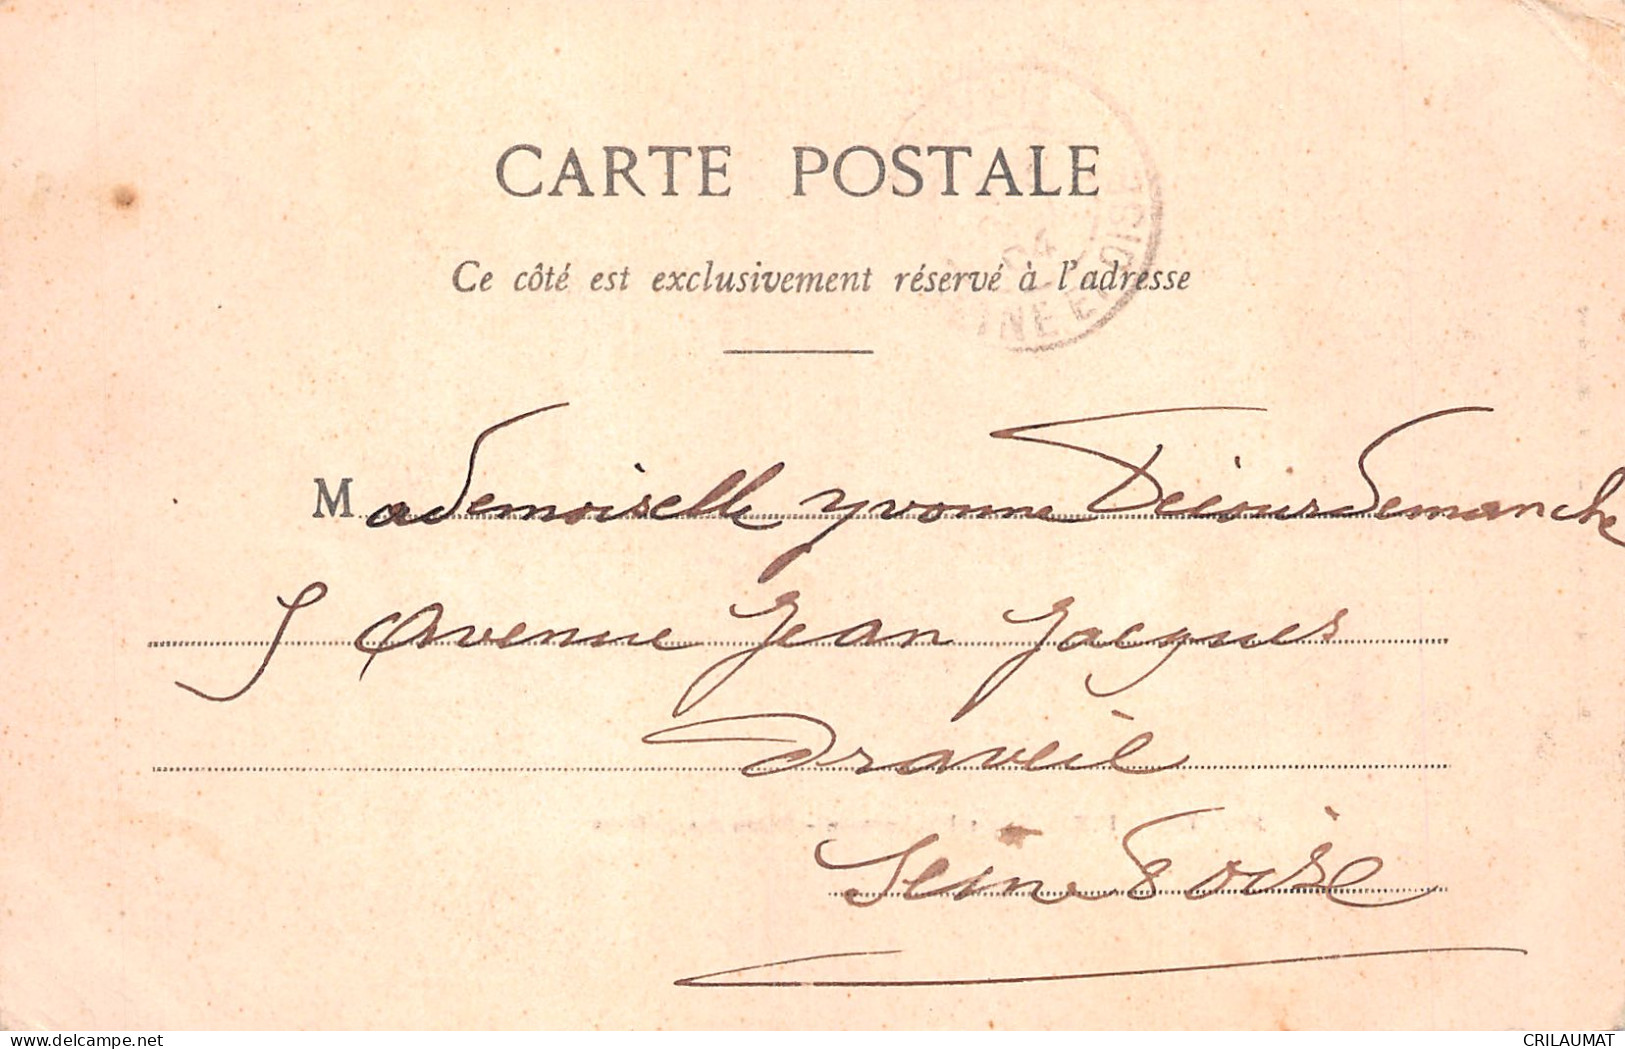 CARTE POSTALE
Ce côté est exclusivement réservé à l'adresse
04
SEINE ET OISE
Mademoiselle Yvonne Décourdemanche
5 Avenue Jean Jacques
Draveil
Seine & Oise
www.delcampe.net
CRILAUMAT